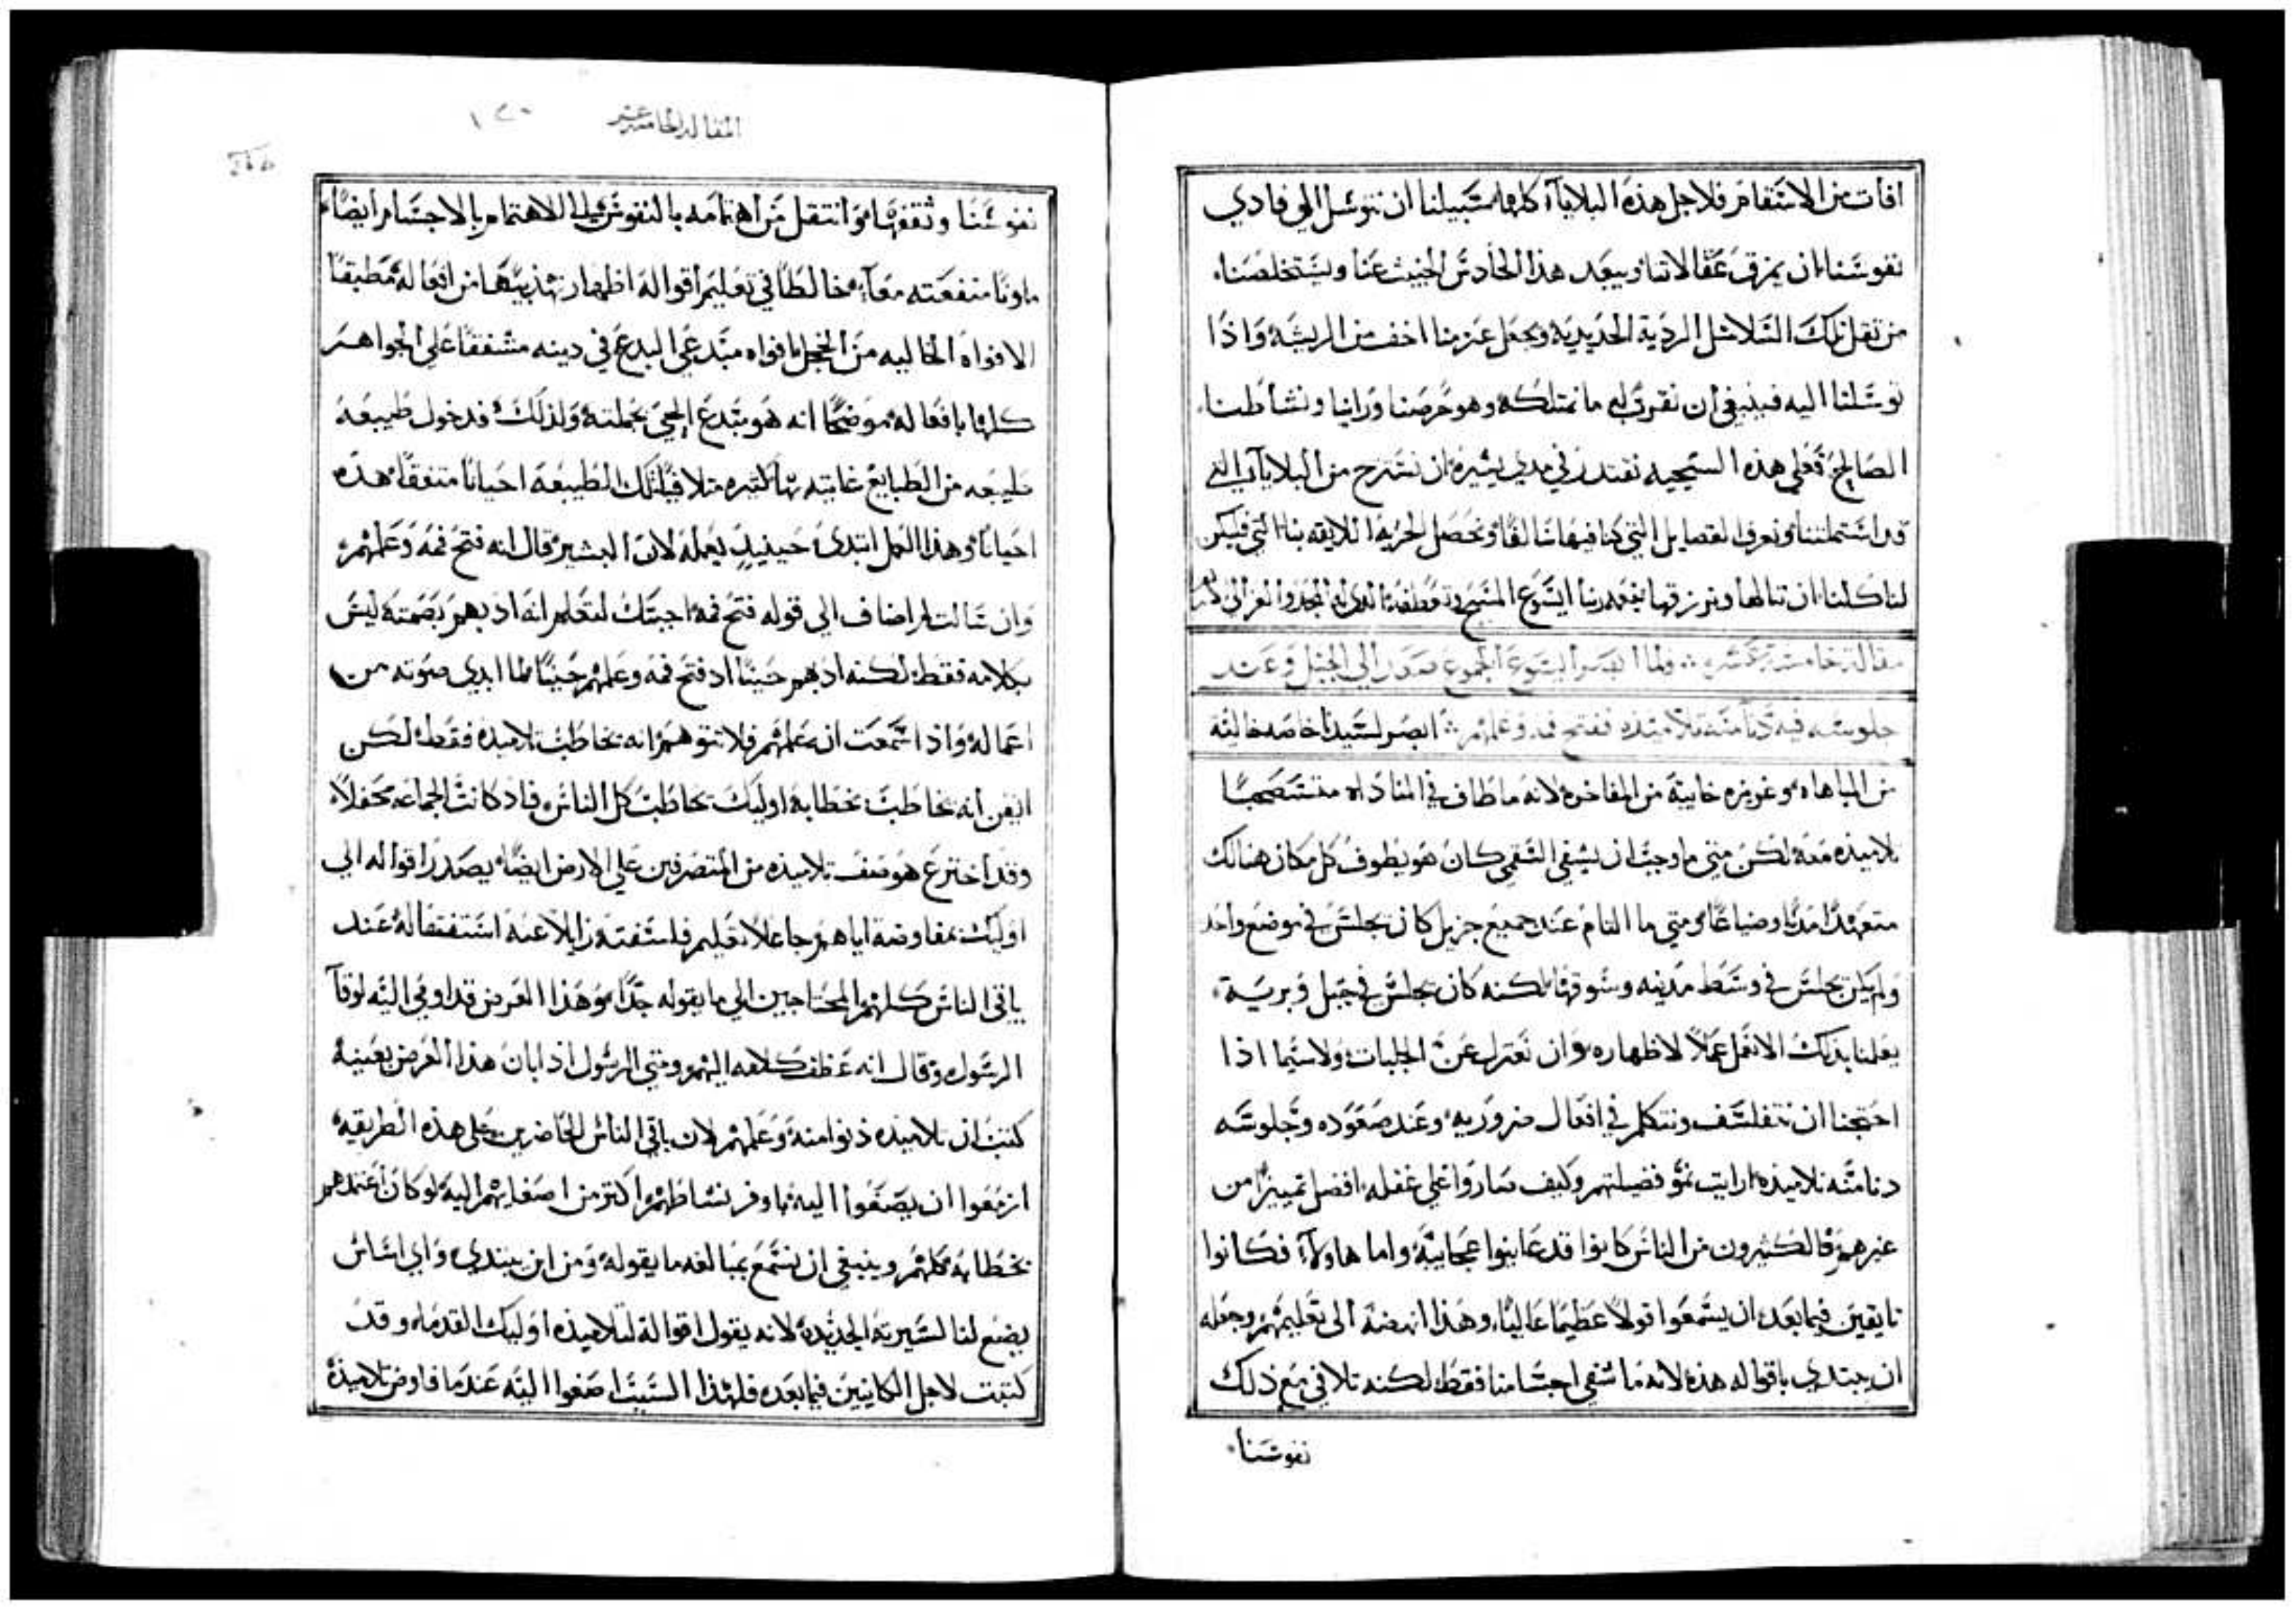 افات من الاسَتقام فلاجل هذه البلايآ كلها سَبيلنا ان نتوسَل الي فادي
نفوسَنا ان يمزق عَقالاتنا ويبعَد هذا الحادسَ الخبيث عَنا ويسَتخلصَنا
من ثقل تلك السَلاسَل الرديَة الحَديديَة ويجعَل عَزمنا اخف من الريشَة وَاذا
توسَلنا اليه فينبغي ان نقرب له ما نمتلكه وهو حَرصَنا وَراينا ونشاطنا
الصَالح فعَلي هذه السَجيه نقتدر في مدي يسَيره ان نسَترح من البلايآ التي
قد اشتملتنا ونعرف الفضايل التي كنا فيها سَالفًا ونحَصَل الحَريَة اللايقه بنا التي فليكن
لنا كلنا ان ننالها ونرزقها بنعَمه ربنا ايسَوع المسَيح وتعَطفه الذي له المجد والعز الي
مقالة خامسَة عَشر ولما ابصَر ايسَوع الجموع صَعَد الي الجبل وعَند
جلوسَه فيه دنا منه تلاميذه ففتح فمه وعَلمهم ابصَر لسَيدنا خاصَه خاليَة
من المباهاه وغريزه خايبَة من المفاخره لانه ما طاف في المناداه مسَتصَحبًا
تلاميذه معَه لكن متي ما وجبَ ان يشفي السَقمي كان هو يطوف كل مكان هنالك
متعَهدًا مدنًا وضياعًا ومتي ما التام عَنده جميع جزيل كان يجلسَ في موضع واحَد
وَلم يكن يجلسَ في وسَط مدينه وسَوقها لكنه كان يجلسَ في جبل وَبريَة
يعَلمنا بذلك الا نعَمل عَملاً لاظهاره وان نعَتزل عَن الجلبات ولاسَيما اذا
احَتجنا ان نتفلسَف ونتكلم في افعَال ضروريه وعَند صَعَوده وجلوسَه
دنا منه تلاميذه ارايت نمو فضيلتهم وكيف صَاروا علي غفله افضل تمييزًا من
غيرهم فالكثيرون من الناسَ كانوا قد عَاينوا عَجايبَه واما هاولآء فكانوا
تايقين فيما بعَد ان يسَمعَوا قولاً عَظيمًا عَاليًا وهذا انهضَه الي تعَليمهم وجعَله
ان يبتدي باقواله هذه لانه ما شفي اجسَامنا فقط لكنه تلافي مع ذلك
نفوسَنا
المقاله الخامسَه عشر
١٢٠
نفوسَنا وثقفها وانتقل من اهتمامه بالنفوسَ الي الاهتمام بالاجسَام ايضًا
ملونًا منفعَته معَآ خالطًا في تعَليم اقواله اظهار تهذيبها من افعَاله مطبقًا
الافواه الخاليه من الخجل افواه مبتدعَي البدع في دينه مشفقًا عَلي الجواهر
كلها بافعَاله موضحًا انه هو مبتدع الحي بجملته وَلذلك فدخول طبيعَه
طبيعَه من الطبايع عَنايته بها كثيره متلافيًا تلك الطبيعَه احيانًا متفقدًا هذه
احَيانًا وهذا العَمل ابتدي حَينيذٍ يعَمله لان البشير قال انه فتح فمه وَعَلمهم
وَان سَالت لم اضاف الي قوله فتح فمه اجبتك لتعَلم انه ادبهم بصَمته ليسَ
بكلامه فقط لكنه ادبهم حَينًا اذ فتح فمه وعَلمهم حَينًا لما ابدي صَوته من
اعَماله وَاذا سَمعَت انه عَلمهم فلا تتوهم انه يخاطب تلاميذه فقط لكن
ايقن انه يخاطب بخطابه اوليك يخاطب كل الناسَ فاذ كانت الجماعه محَفلاً
وقد اخترع هو صَف تلاميذه من المتصَرفين علي الارض ايضًا يصَدر اقواله الي
اوليك بمفاوضه اياهم جاعلاً تعَليم فلسَفته زايلاً عَنه اسَتثقاله عَند
باقي الناسَ كلهم المحتاجين الي ما يقوله جدًا وَهذا الغرض قد اومي اليه لوقا
الرسَول وَقال انه عَطف كلامه اليهم ومتي الرسَول اذ ابان هذا الغرض بعَينه
كتب ان تلاميذه دنوا منه وعَلمهم لان باقي الناسَ الحاضرين علي هذه الطريقه
ازمعَوا ان يصَغوا اليه باوفر نشاطهم اكثر من اصَغايهم اليه لو كان عَندهم
بخطابه كلهم وينبغي ان نسَمع بمبالغه ما يقوله وَمن اين يبتدي وَاي اسَاسَ
يضع لنا لسَيرته الجديده لانه يقول اقواله لتلاميذه اوليك القدماء وقد
كتبت لاجل الكاينين فيما بعَده فلهذا السَبب اصَغوا اليه عَندما فاوض تلاميذه